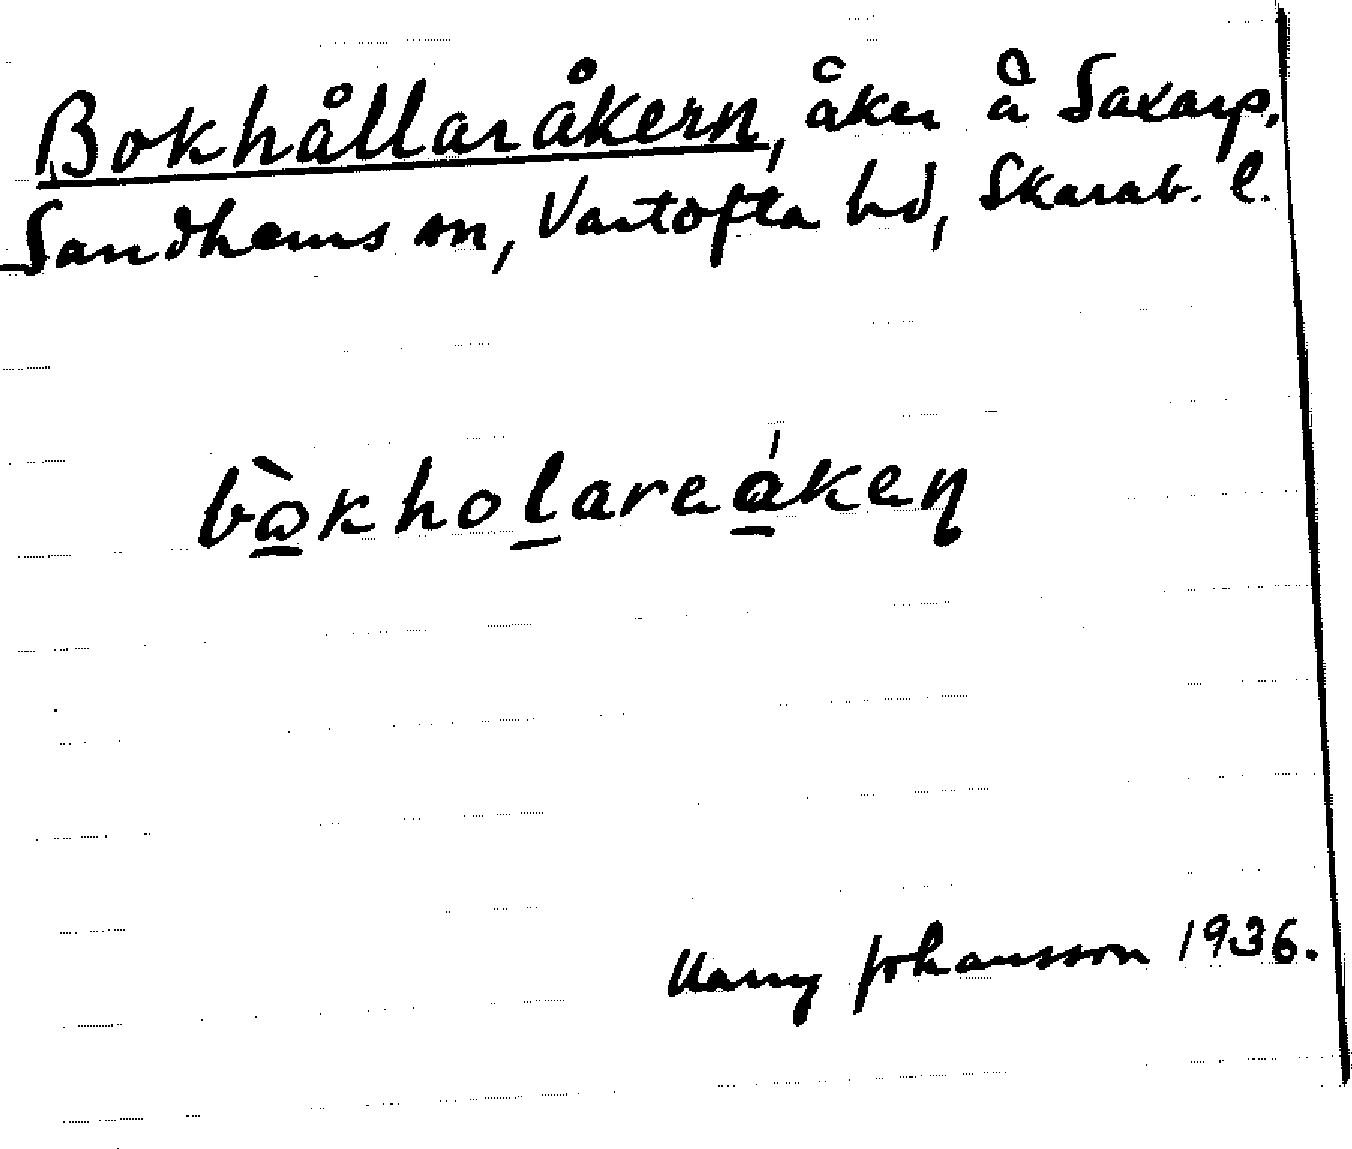 Bokhållaråkern, åker å Saxarp.
Sandhems sn, Vartofta hd, Skarab. l.
bò̲khol̲areá̲keɳ
Harry Johansson 1936.